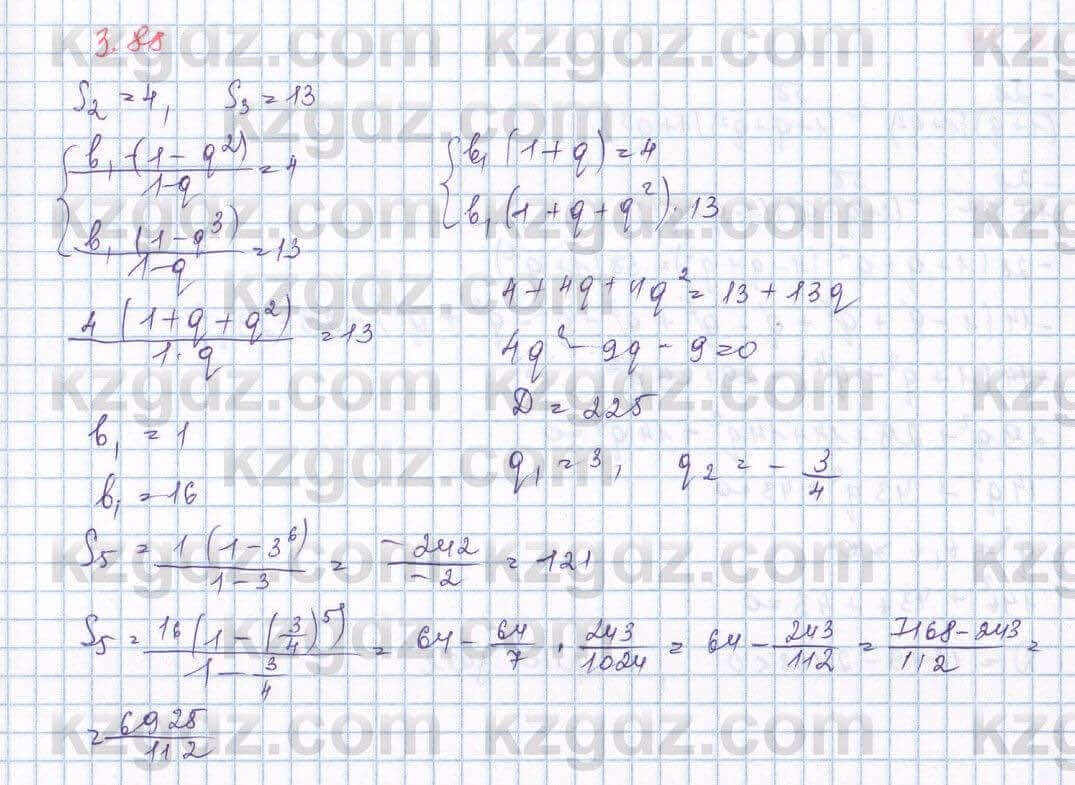 3.88
S₂ = 4, S₃ = 13
{ b₁ · (1 - q²) / (1 - q) = 4
{ b₁ (1 - q³) / (1 - q) = 13
4 (1 + q + q²) / (1 · q) = 13
b₁ = 1
b₁ = 16
{ b₁ (1 + q) = 4
{ b₁ (1 + q + q²) · 13
4 + 4q + 4q² = 13 + 13q
4q² - 9q - 9 = 0
D = 225
q₁ = 3, q₂ = - 3/4
S₅ = 1 (1 - 3⁶) / (1 - 3) = -242 / -2 = 121
S₅ = 16 (1 - (3/4)⁵) / (1 - 3/4) = 64 - 64/7 · 243/1024 = 64 - 243/112 = (7168 - 243) / 112 =
= 6925 / 112
kzgdz.com